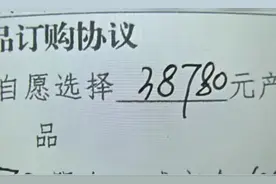 品订购协议
自愿选择 38780 元产
品